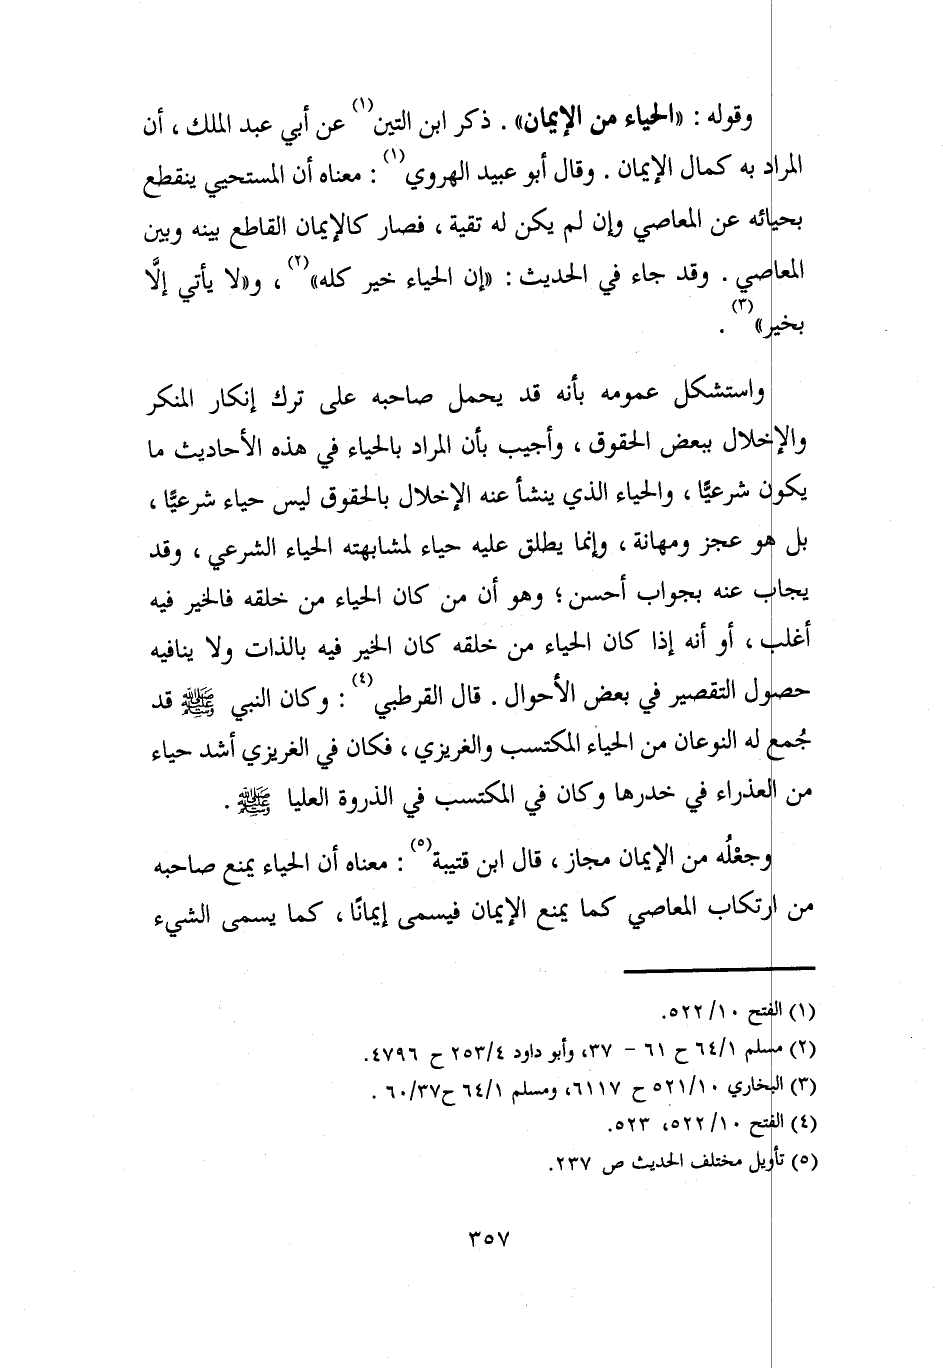 وقوله : «الحياء من الإيمان» . ذكر ابن التين(١) عن أبي عبد الملك ، أن
المراد به كمال الإيمان . وقال أبو عبيد الهروي(١) : معناه أن المستحيي ينقطع
بحيائه عن المعاصي وإن لم يكن له تقية ، فصار كالإيمان القاطع بينه وبين
المعاصي . وقد جاء في الحديث : «إن الحياء خير كله»(٢) ، و«لا يأتي إلَّا
بخير»(٣) .
واستشكل عمومه بأنه قد يحمل صاحبه على ترك إنكار المنكر
والإخلال ببعض الحقوق ، وأجيب بأن المراد بالحياء في هذه الأحاديث ما
يكون شرعيًّا ، والحياء الذي ينشأ عنه الإخلال بالحقوق ليس حياء شرعيًّا ،
بل هو عجز ومهانة ، وإنما يطلق عليه حياء لمشابهته الحياء الشرعي ، وقد
يجاب عنه بجواب أحسن ؛ وهو أن من كان الحياء من خلقه فالخير فيه
أغلب ، أو أنه إذا كان الحياء من خلقه كان الخير فيه بالذات ولا ينافيه
حصول التقصير في بعض الأحوال . قال القرطبي(٤) : وكان النبي ﷺ قد
جُمع له النوعان من الحياء المكتسب والغريزي ، فكان في الغريزي أشد حياء
من العذراء في خدرها وكان في المكتسب في الذروة العليا ﷺ .
وجعْلُه من الإيمان مجاز ، قال ابن قتيبة(٥) : معناه أن الحياء يمنع صاحبه
من ارتكاب المعاصي كما يمنع الإيمان فيسمى إيمانًا ، كما يسمى الشيء
(١) الفتح ١٠/ ٥٢٢.
(٢) مسلم ٦٤/١ ح ٦١ - ٣٧، وأبو داود ٢٥٣/٤ ح ٤٧٩٦.
(٣) البخاري ٥٢١/١٠ ح ٦١١٧، ومسلم ٦٤/١ ح٦٠/٣٧ .
(٤) الفتح ١٠/ ٥٢٢، ٥٢٣.
(٥) تأويل مختلف الحديث ص ٢٣٧.
٣٥٧